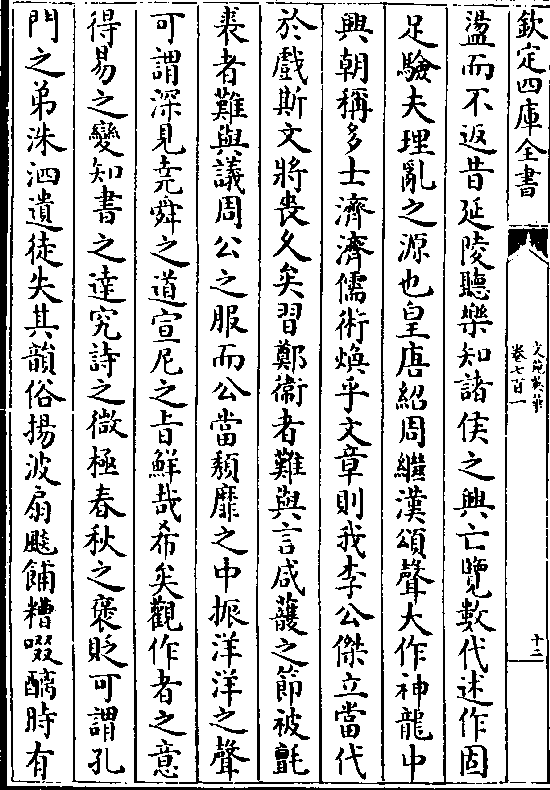 欽定四庫全書
文苑英華
卷七百一
十二
盪而不返昔延陵聽樂知諸侯之興亡覽數代述作固
足驗夫理亂之源也皇唐紹周繼漢頌聲大作神龍中
興朝稱多士濟濟儒術煥乎文章則我李公傑立當代
於戲斯文將喪久矣習鄭衞者難與言咸頀之節被氈
裘者難與議周公之服而公當頽靡之中振洋洋之聲
可謂深見堯舜之道宣尼之㫖鮮哉希矣觀作者之意
得易之變知書之達究詩之微極春秋之褒貶可謂孔
門之弟洙泗遺徒失其韻俗揚波扇飈餔糟啜醨時有